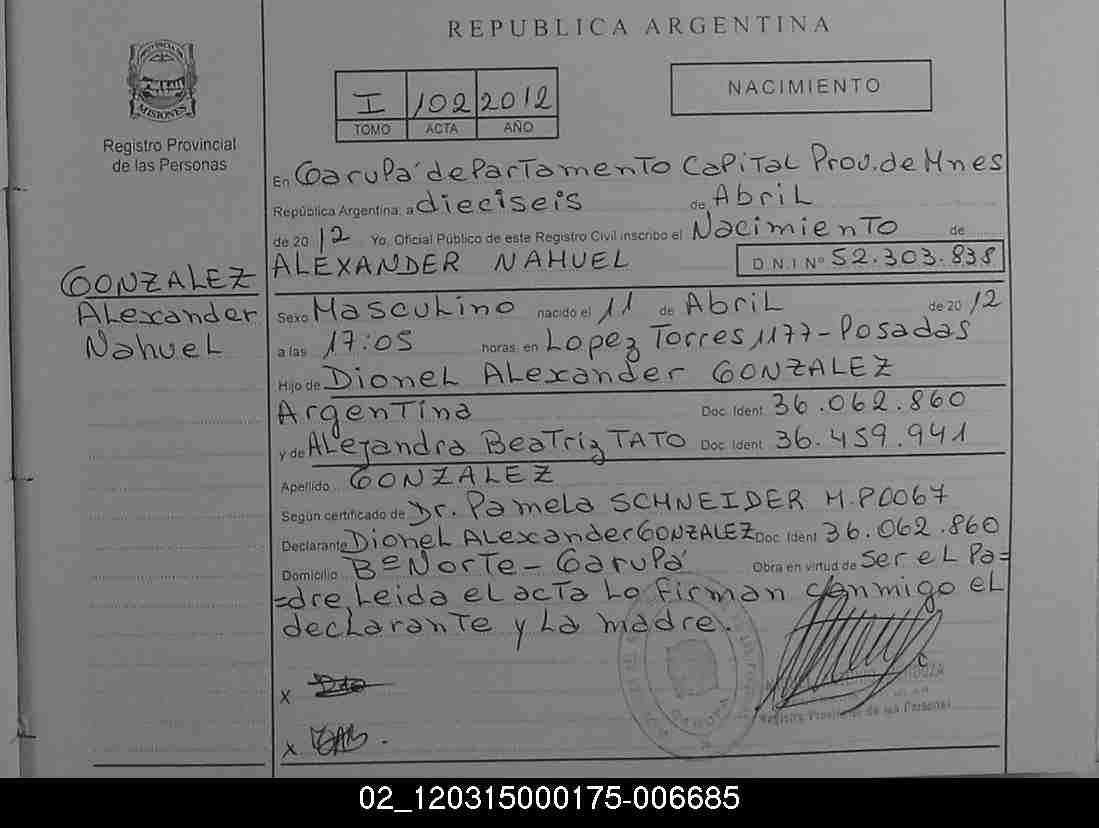 REPUBLICA ARGENTINA
PROVINCIA DE
MISIONES
Registro Provincial
de las Personas
I 102 2012
TOMO ACTA AÑO
NACIMIENTO
En Garupá departamento Capital Prov. de Mnes
República Argentina, a dieciseis de Abril
de 2012 Yo, Oficial Público de este Registro Civil inscribo el Nacimiento de
ALEXANDER NAHUEL D.N.I Nº 52.303.838
GONZALEZ
Alexander
Nahuel
Sexo Masculino nacido el 11 de Abril de 2012
a las 17:05 horas, en Lopez Torres 1177-Posadas
Hijo de Dionel Alexander GONZALEZ
Argentina Doc. Ident. 36.062.860
y de Alejandra Beatriz TATO Doc. Ident. 36.459.941
Apellido GONZALEZ
Según certificado de Dr. Pamela SCHNEIDER M.P0067
Declarante Dionel Alexander GONZALEZ Doc. Ident. 36.062.860
Domicilio Bº Norte - Garupá Obra en virtud de ser el Pa=
=dre, Leida el acta lo firman conmigo el
declarante y la madre.
x
x
GARUPA
Registro Provincial de las Personas
02_120315000175-006685